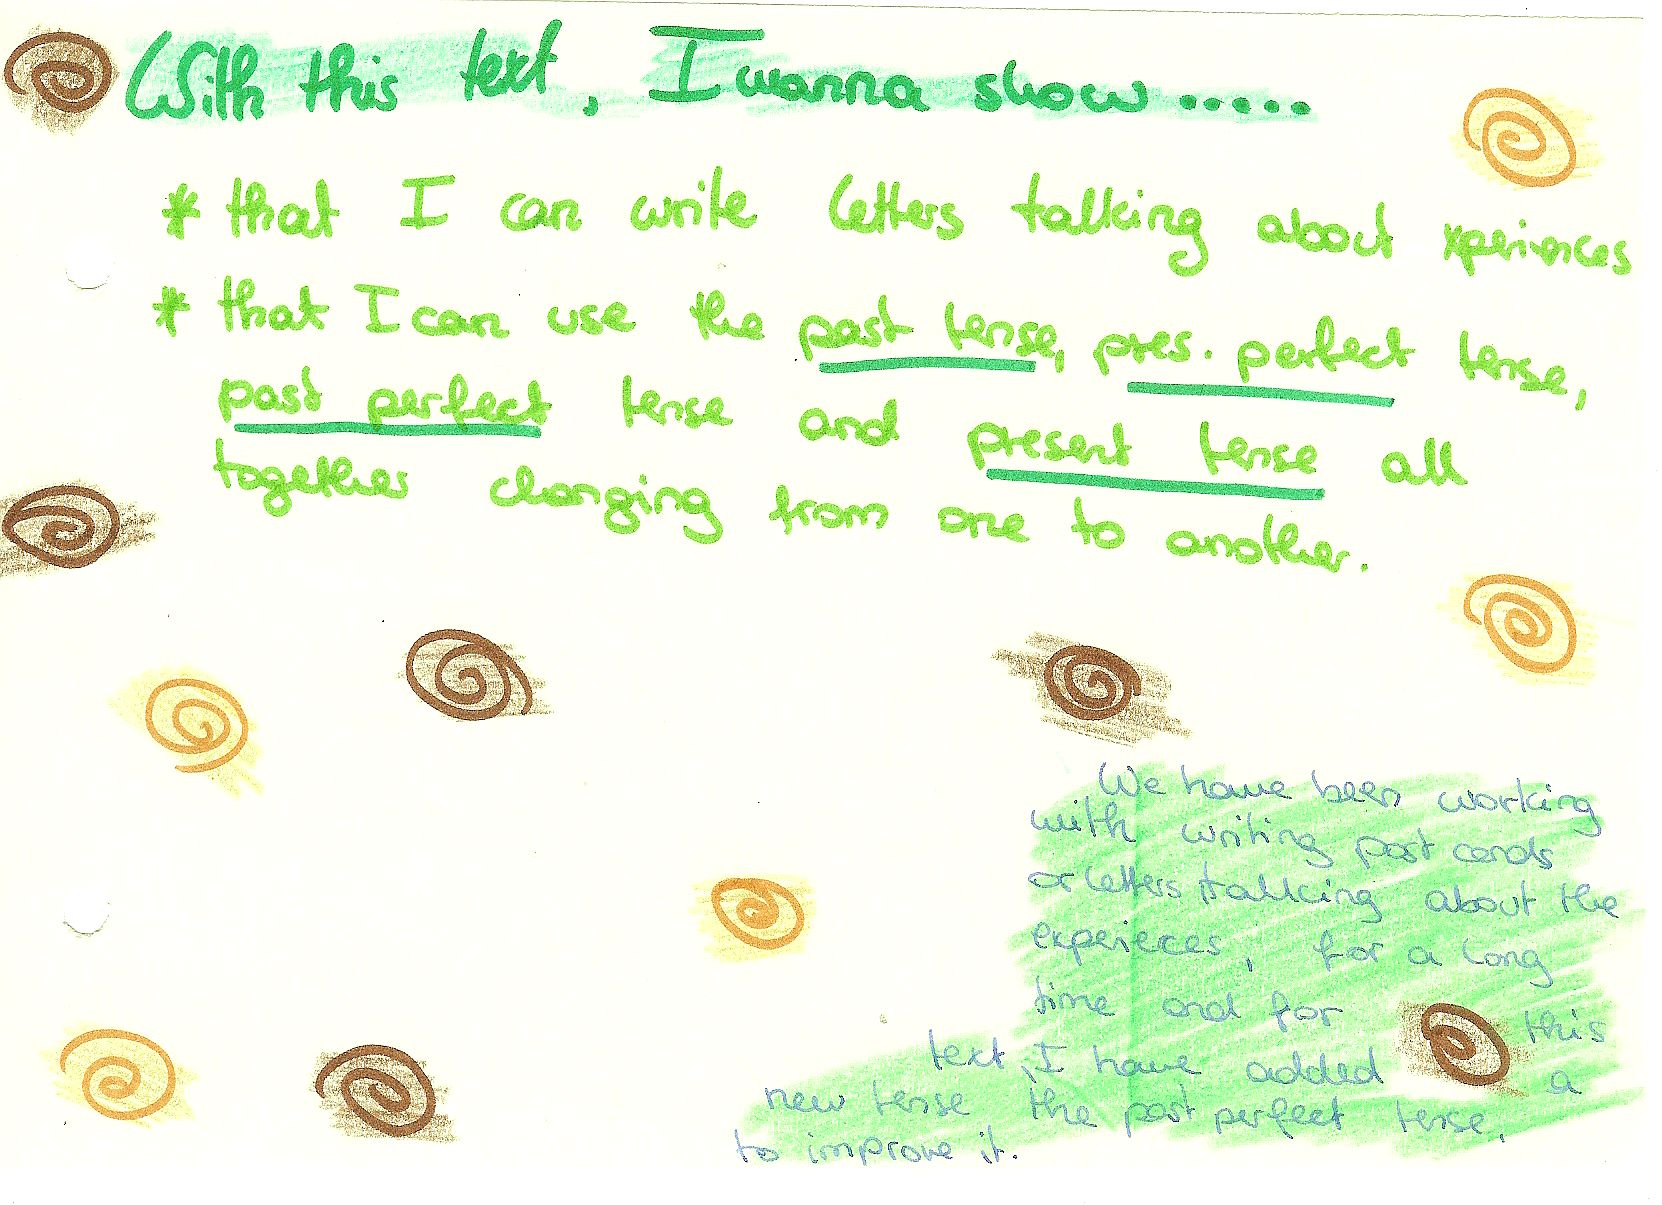 With this text, I wanna show.....
* that I can write letters talking about xperiences
* that I can use the past tense, pres. perfect tense,
past perfect tense and present tense all
together changing from one to another.
We have been working
with writing post cards
or letters talking about the
experieces, for a long
time and for this
text, I have added a
new tense the past perfect tense,
to improve it.